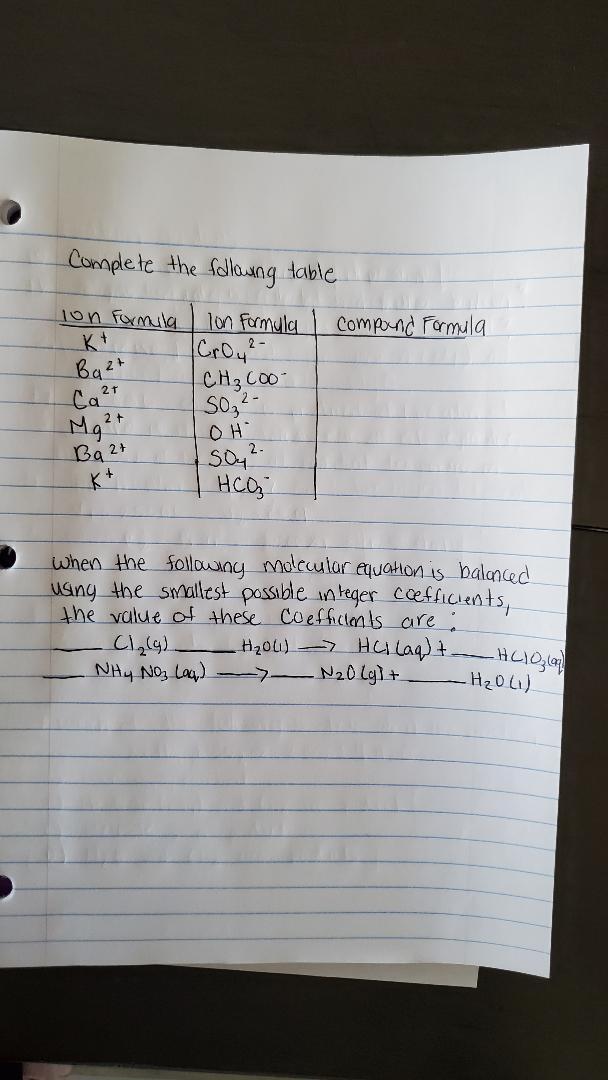 Complete the following table
Ion Formula | Ion Formula | Compound Formula
K⁺ | CrO₄²⁻
Ba²⁺ | CH₃COO⁻
Ca²⁺ | SO₃²⁻
Mg²⁺ | OH⁻
Ba²⁺ | SO₄²⁻
K⁺ | HCO₃⁻
When the following molecular equation is balanced
using the smallest possible integer coefficients,
the value of these coefficients are :
____ Cl₂(g) ____ H₂O(l) → HCl(aq) + ____ HClO₃(aq)
____ NH₄NO₃(aq) → ____ N₂O(g) + ____ H₂O(l)